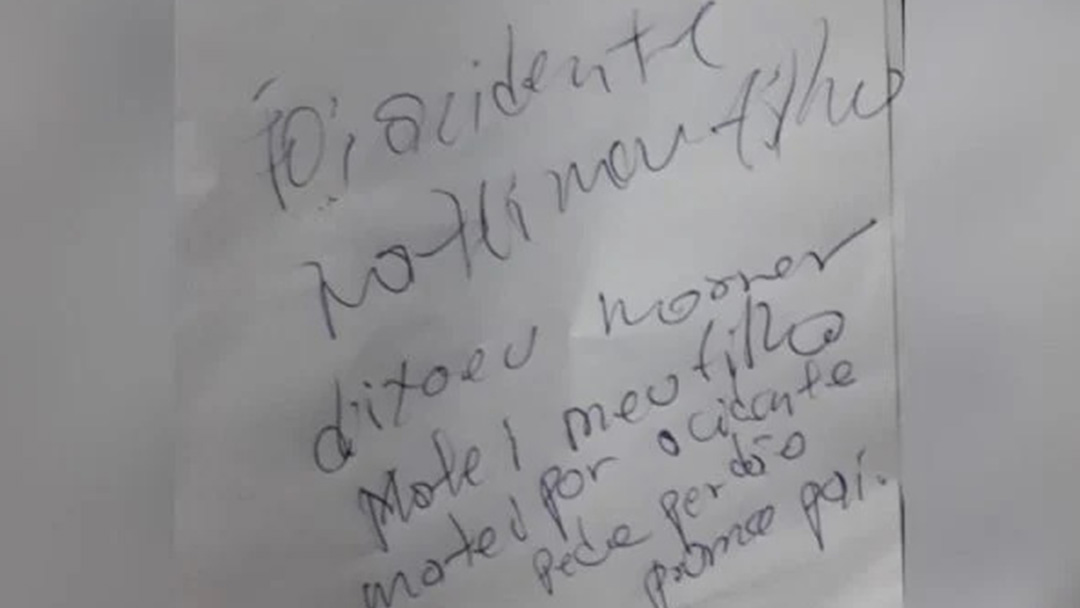 foi acidente
matei meu filho
dixoeu morrer
Matei meu filho
matei por acidente
pede perdão
pai.